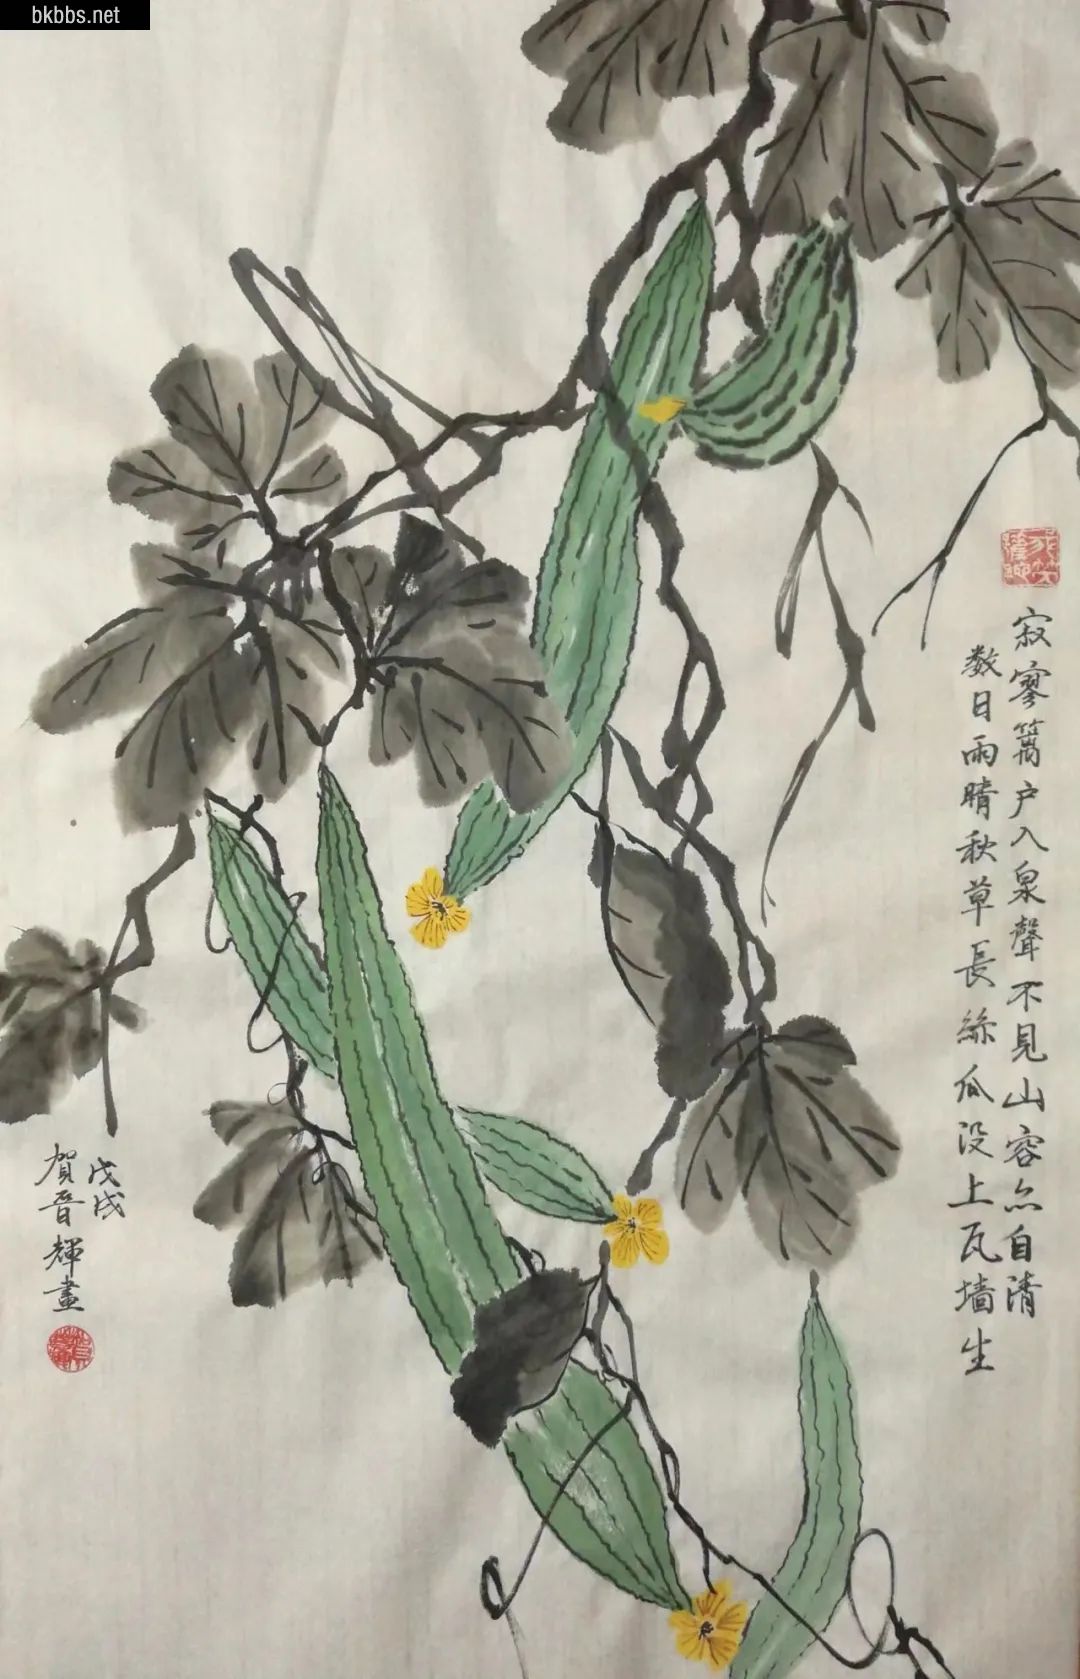 bkbbs.net
寂寥篱户入泉聲不見山容亦自清
数日雨晴秋草長絲瓜没上瓦墙生
戊戌
賀晉輝畫